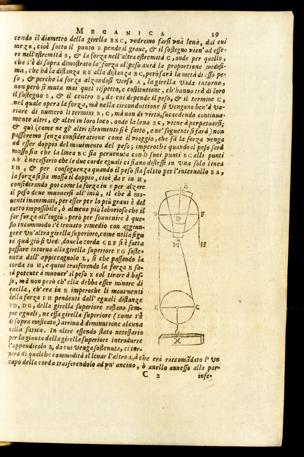 MECANICA 19
cendo il diametro della girella BSC, vedremo farsi una lena, dal cui
mezo, cioè sotto il punto D pende il grave, & il sostegno vien' ad esse-
re nell'estremità B, & la forza nell'altra estremità C, onde per quello,
che s'è di sopra dimostrato la forza al peso avrà la proportione medesi-
ma, che hà la distanza BD alla distanza BC, però sarà la metà di esso pe-
so, & perche la forza alzando il peso verso A, la girella và intorno,
non però si muta mai quel rispetto, e costitutione, che hanno trà di loro
il sostegno B, & il centro D, da cui depende il peso, & il termine C,
nel quale opera la forza, mà nella circonduttione si vengono ben' à va-
riare di numero li termini B, C, mà non di virtù, succedendo continua-
mente altri, & altri in loro loco, onde la lena BC, viene à perpetuarsi;
& quì (come ne gl' altri istrumenti si è fatto, e ne' seguenti si farà) non
passeremo senza considerarione come il viaggio, che fà la forza venga
ad esser doppio del movimento del peso; imperoche quando il peso sarà
mosso sin che la linea BC sia pervenuta con li suoi punti BC alli punti
AE è necessario che le due corde eguali si siano distese in una sola linea
FH, & per conseguenza quando il peso sia salito per l'intervallo BA,
la forza si sia mossa il doppio, cioè da C in H,
considerando poi come la forza in H per alzar
il peso deve muoversi all'insù, il che à mo-
tori inanimati, per esser per lo più gravi è del
tutto impossibile, ò almeno più laborioso che il
far forza all'ingiù, però per sovvenire à que-
sto incommodo s'è trovato rimedio con aggiun-
gere un' altra girella superiore, come nella figu-
ra
passare intorno alla girella superiore FG soste-
nuta dall'appiccagnolo L, si che passando la
corda in H, e quivi trasferendo la forza
sarà potente à muover' il peso X col tirare à bas-
so, mà non però ch'ella debba esser minore di
quella, ch'era in
della forza FH pendenti dall'eguali distanze
FD, DG, della girella superiore restano sem-
pre eguali, ne essa girella superiore (come s'è
di sopra mostrato) arriva à diminutione alcuna
nella fatica. In oltre essendo stato necessario
per la giunta della girella superiore introdurre
l'appendicolo B, da cui venga sostenuta, ci tor-
nerà di qualche commodità il levar l'altro A, à che era raccomandato l' un
capo della corda trasferendolo ad un' ancino, ò anello annesso alla par-
C 2 infe-